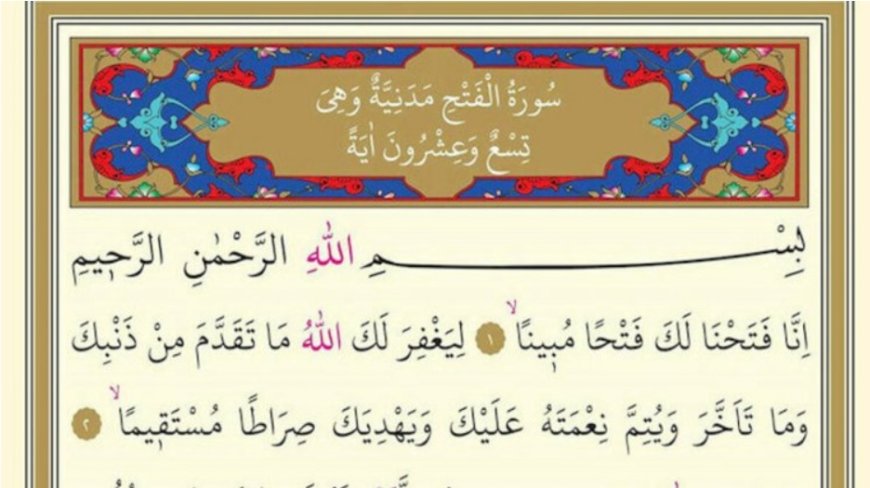 سُورَةُ الْفَتْحِ مَدَنِيَّةٌ وَهِىَ
تِسْعٌ وَعِشْرُونَ اٰيَةً
بِسْمِ اللّٰهِ الرَّحْمٰنِ الرَّحٖيمِ
اِنَّا فَتَحْنَا لَكَ فَتْحًا مُبٖينًاۙ ١ لِيَغْفِرَ لَكَ اللّٰهُ مَا تَقَدَّمَ مِنْ ذَنْبِكَ
وَمَا تَاَخَّرَ وَيُتِمَّ نِعْمَتَهُ عَلَيْكَ وَيَهْدِيَكَ صِرَاطًا مُسْتَقٖيمًاۙ ٢